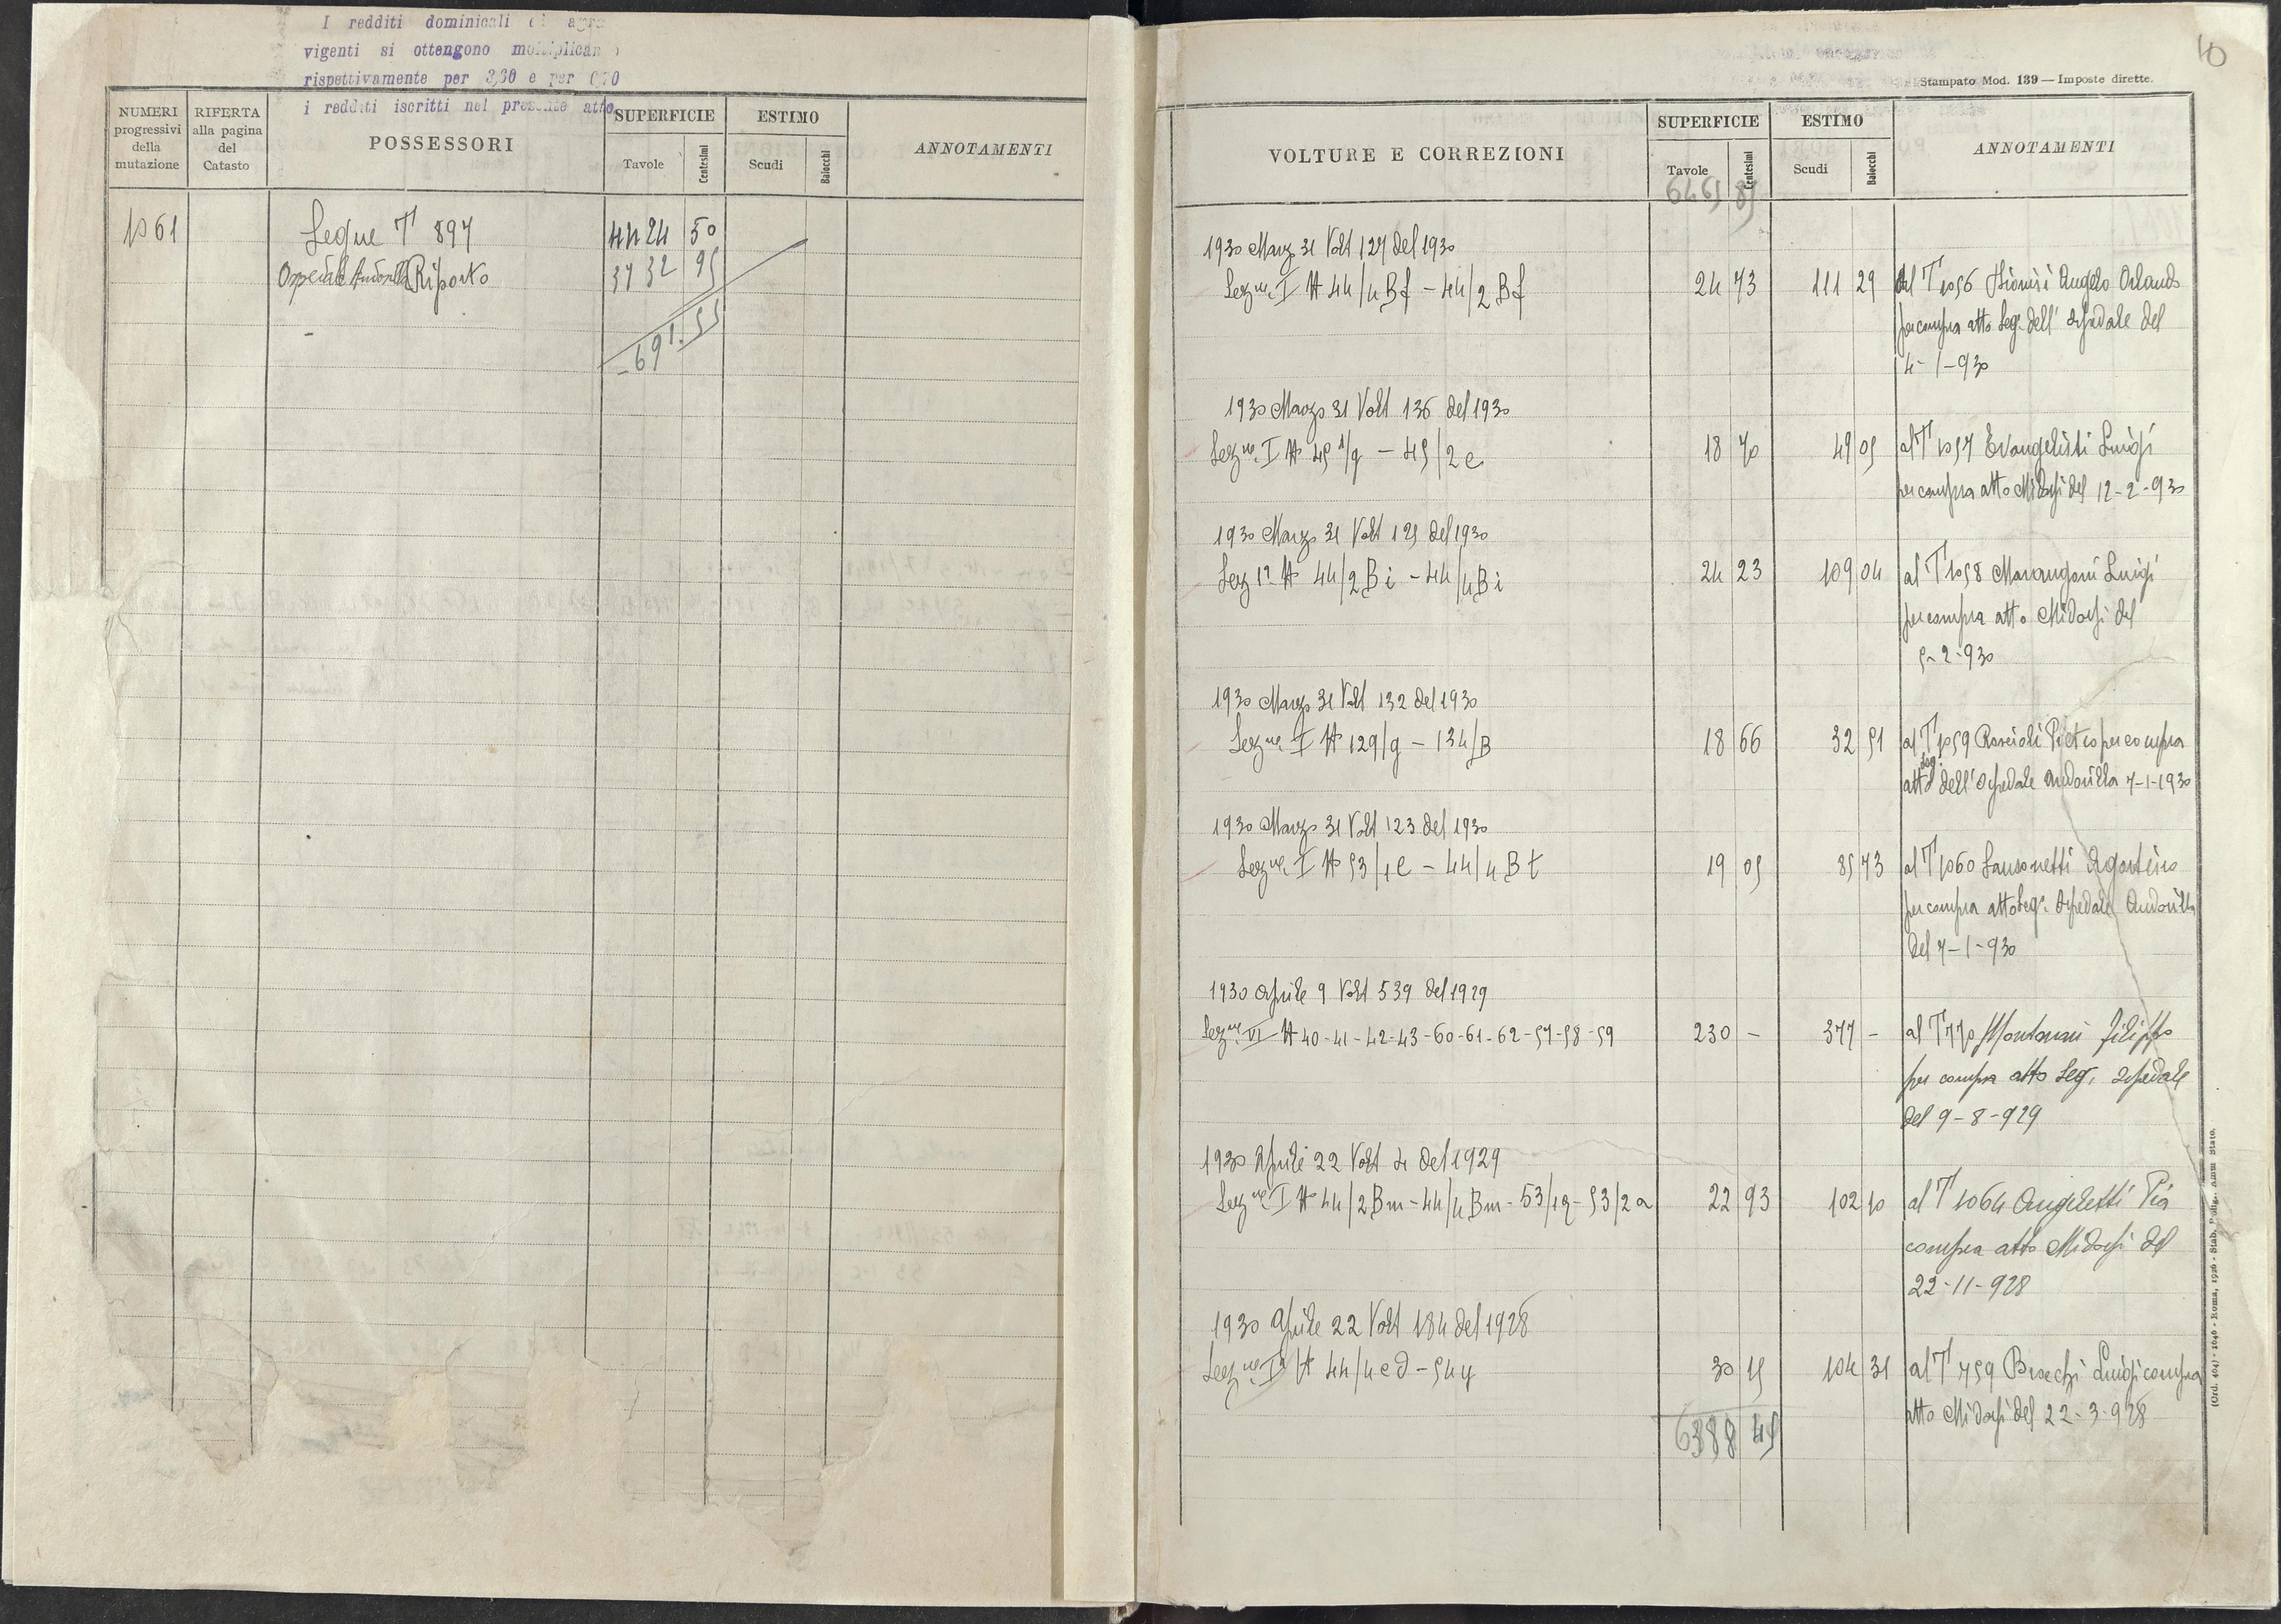 I redditi dominicali ed agra
vigenti si ottengono moltiplican
rispettivamente per 3,60 e per 0,70
i redditi iscritti nel presente atto.
NUMERI progressivi della mutazione
RIFERTA alla pagina del Catasto
POSSESSORI
SUPERFICIE
Tavole
Centesimi
ESTIMO
Scudi
Baiocchi
ANNOTAMENTI
1061 Segue T 897 4424 50
Ospedale Andosilla Riporto 3732 95
-691.55
10
Stampato Mod. 139 — Imposte dirette.
VOLTURE E CORREZIONI
SUPERFICIE
Tavole
Centesimi
ESTIMO
Scudi
Baiocchi
ANNOTAMENTI
1930 Marzo 31 Volt 127 del 1930
Sez.ne I N 44/4 Bf – 44/2 Bf 24 73 111 29 al T 1056 Dionisi Angelo Orlando
per compra atto Seg. dell' Ospedale del
4-1-930
1930 Marzo 31 Volt 136 del 1930
Sez.ne I N 45 1/g – 45/2 e 18 70 49 05 al T 1057 Evangelisti Luigi
per compra atto Midossi del 12-2-930
1930 Marzo 31 Volt 125 del 1930
Sez 1a N 44/2 B i – 44/4 B i 24 23 109 04 al T 1058 Marangoni Luigi
per compra atto Midossi del
5-2-930
1930 Marzo 31 Volt 132 del 1930
Sez.ne I N 129/g – 134/B 18 66 32 51 al T 1059 Roscioli Pietro per compra
atto seg. dell'Ospedale Andosilla 7-1-1930
1930 Marzo 31 Volt 123 del 1930
Sez.ne I N 53/1 e – 44/4 B t 19 05 85 73 al T 1060 Sansonetti Agostino
per compra atto Seg. Ospedale Andosilla
del 7-1-930
1930 Aprile 9 Volt 539 del 1929
Sez.ne VI N 40-41-42-43-60-61-62-57-58-59 230 – 377 – al T 770 Montanari Filippo
per compra atto Seg. Ospedale
del 9-8-929
1930 Aprile 22 Volt del 1929
Sez.ne I N 44/2 Bm – 44/4 Bm – 53/1 – 53/2 a 22 93 102 10 al T 1064 Angeletti Pia
compra atto Midossi del
22-11-928
1930 Aprile 22 Volt 184 del 1928
Sez.ne Ia N 44/4 cd – 30 15 104 31 al T 759 Luigi compra
atto Midossi del 22-3-928
6388 45
(Ord. 404) - 1046 - Roma, 1926 - Stab. Polig. Amm Stato.